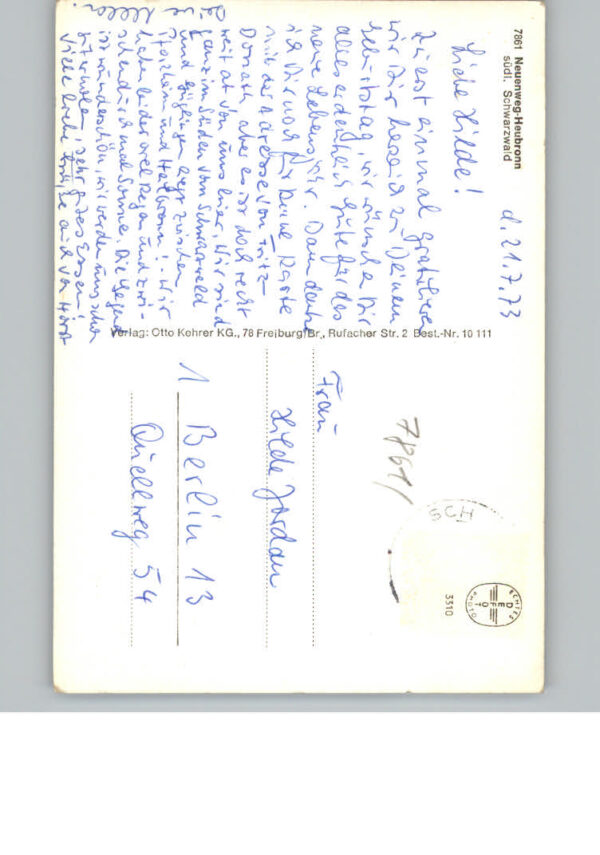 7861 Neuenweg-Heubronn
südl. Schwarzwald
d. 21.7.73
Liebe Hilde!
Zuerst einmal gratulieren
wir Dir herzlich zu Deinem
Geburtstag, wir wünschen Dir
alles erdenklich Gute für das
neue Lebensjahr. Dann danke
ich Dir noch für Deine Karte
mit der Adresse von Fritz
Donath, aber es ist doch recht
weit ab von uns hier. Wir sind
ganz im Süden vom Schwarzwald
und liegt zwischen
und Heilbronn! Wir
haben leider viel Regen und zwi-
schendurch mal Sonne. Die Gegend
ist wunderschön, wir werden uns schon
erholen, sehr gutes Essen!
Viele liebe Grüße auch von Horst
Verlag: Otto Kehrer KG., 78 Freiburg/Br., Rufacher Str. 2 Best.-Nr. 10 111
7861
HCS
ECHTES
DEFOT
PHOTO
3510
Frau
Hilde Jordan
1 Berlin 13
Quellweg 54